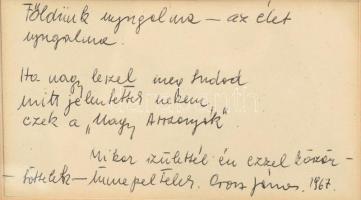 Földünk nyugalma — az élet
nyugalma.
Ha nagy leszel meg tudod
mitt jelentettek nekem,
ezek a „Nagy Asszonyok".
Mikor születtél én ezzel köszön-
- töttelek — Ünnepeltelek. Orosz János. 1967.